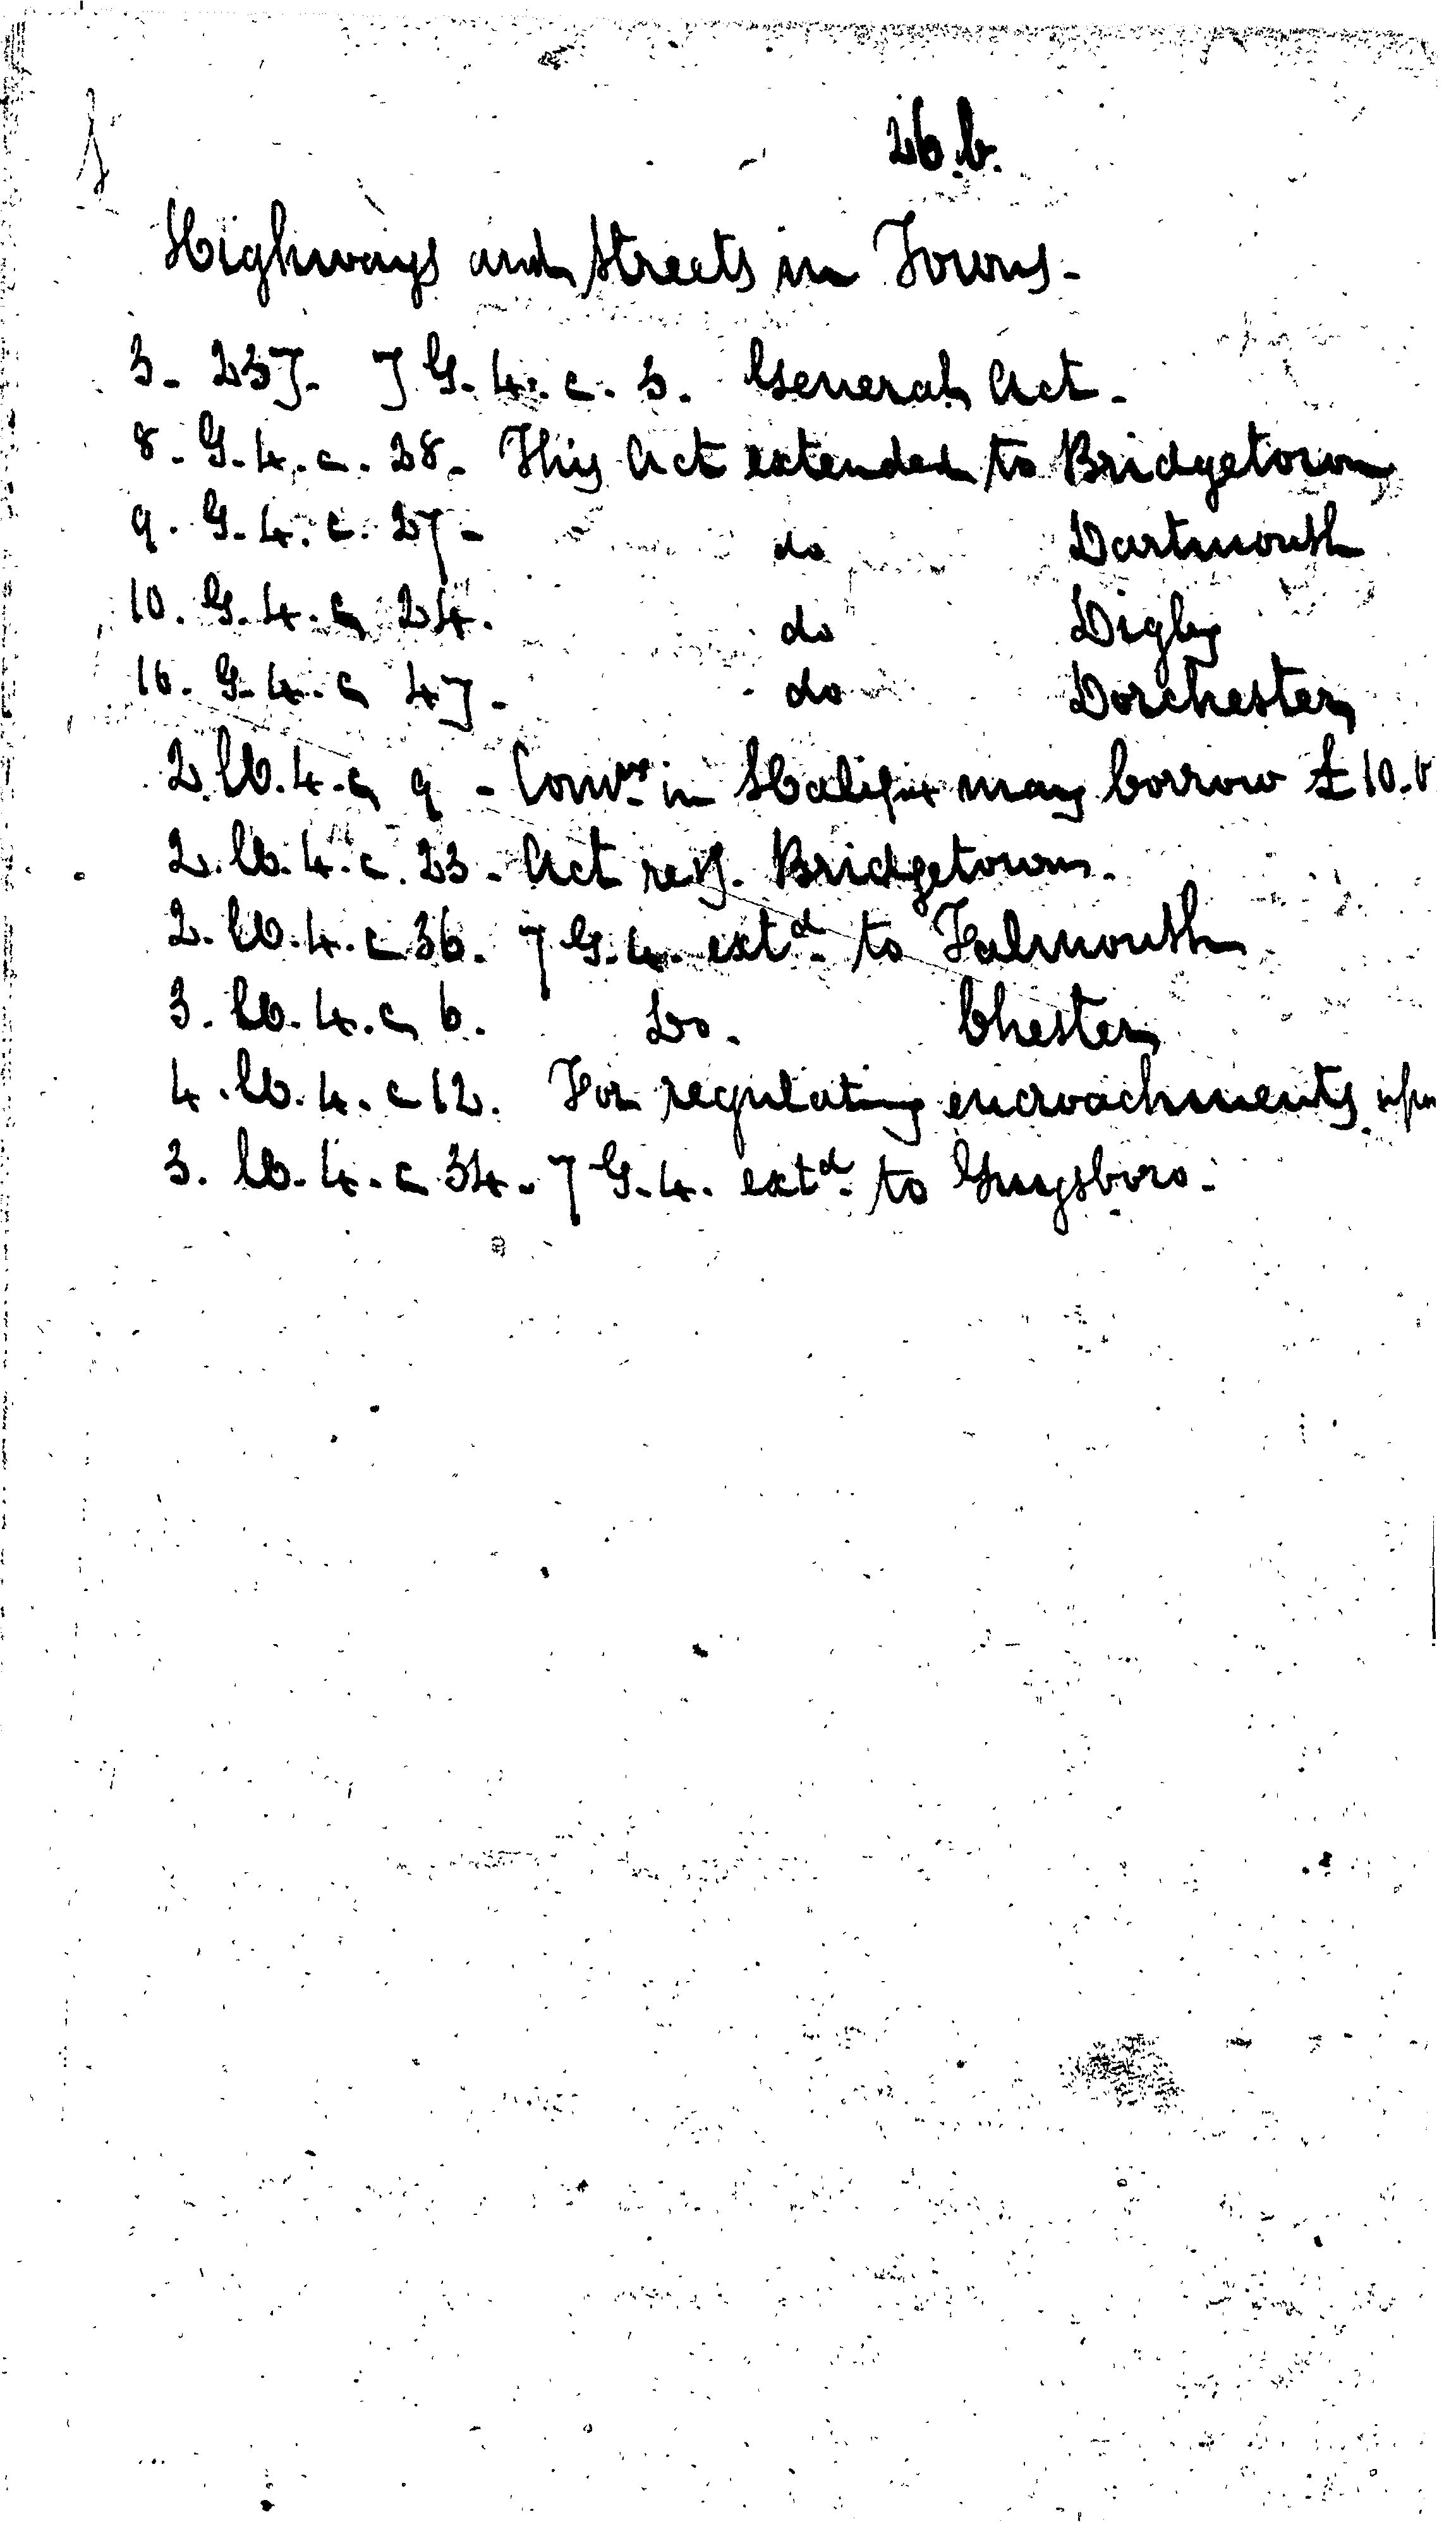 26.b.
Highways and Streets in Towns -
3. 237. 7 G. 4. c. 3. General Act -
8. G. 4. c. 38. This Act extended to Bridgetown
9. G. 4. c. 27 - do Dartmouth
10. G. 4. c 24. do Digby
10. G. 4. c 47. do Dorchester
2. W. 4. c 9 - Com.rs in Halifax may borrow £10.
2. W. 4. c. 23 - Act resp. Bridgetown.
2. W. 4. c 36. 7 G. 4. ext.d to Falmouth
3. W. 4. c 6. Do. Chester
4. W. 4. c 12. For regulating encroachments upon
3. W. 4. c 34. 7 G. 4. ext.d to Guysboro.